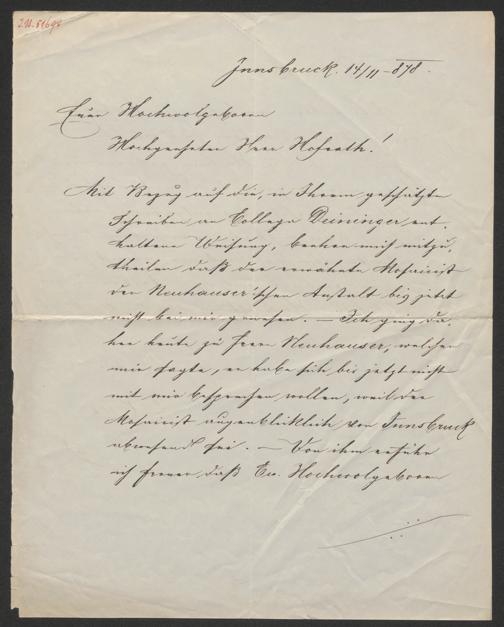 Innsbruck. 14/11 - 878.
Euer Hochwolgeboren
Hochgeehrter Herr Hofrath!
Mit Bezug auf die, in Ihrem geschätzten
Schreiben an Collega Deininger ent-
haltene Weisung, beehre mich mitzu-
theilen daß der erwähnte Mosaicist
der Neuhauser'schen Anstalt bis jetzt
nicht bei mir gewesen. — Ich ging da-
her heute zu Herrn Neuhauser, welcher
mir sagte, er habe sich bis jetzt nicht
mit mir besprechen wollen, weil der
Mosaicist augenblicklich von Innsbruck
abwesend sei. — Von ihm erfuhr
ich ferner daß Eu. Hochwolgeboren